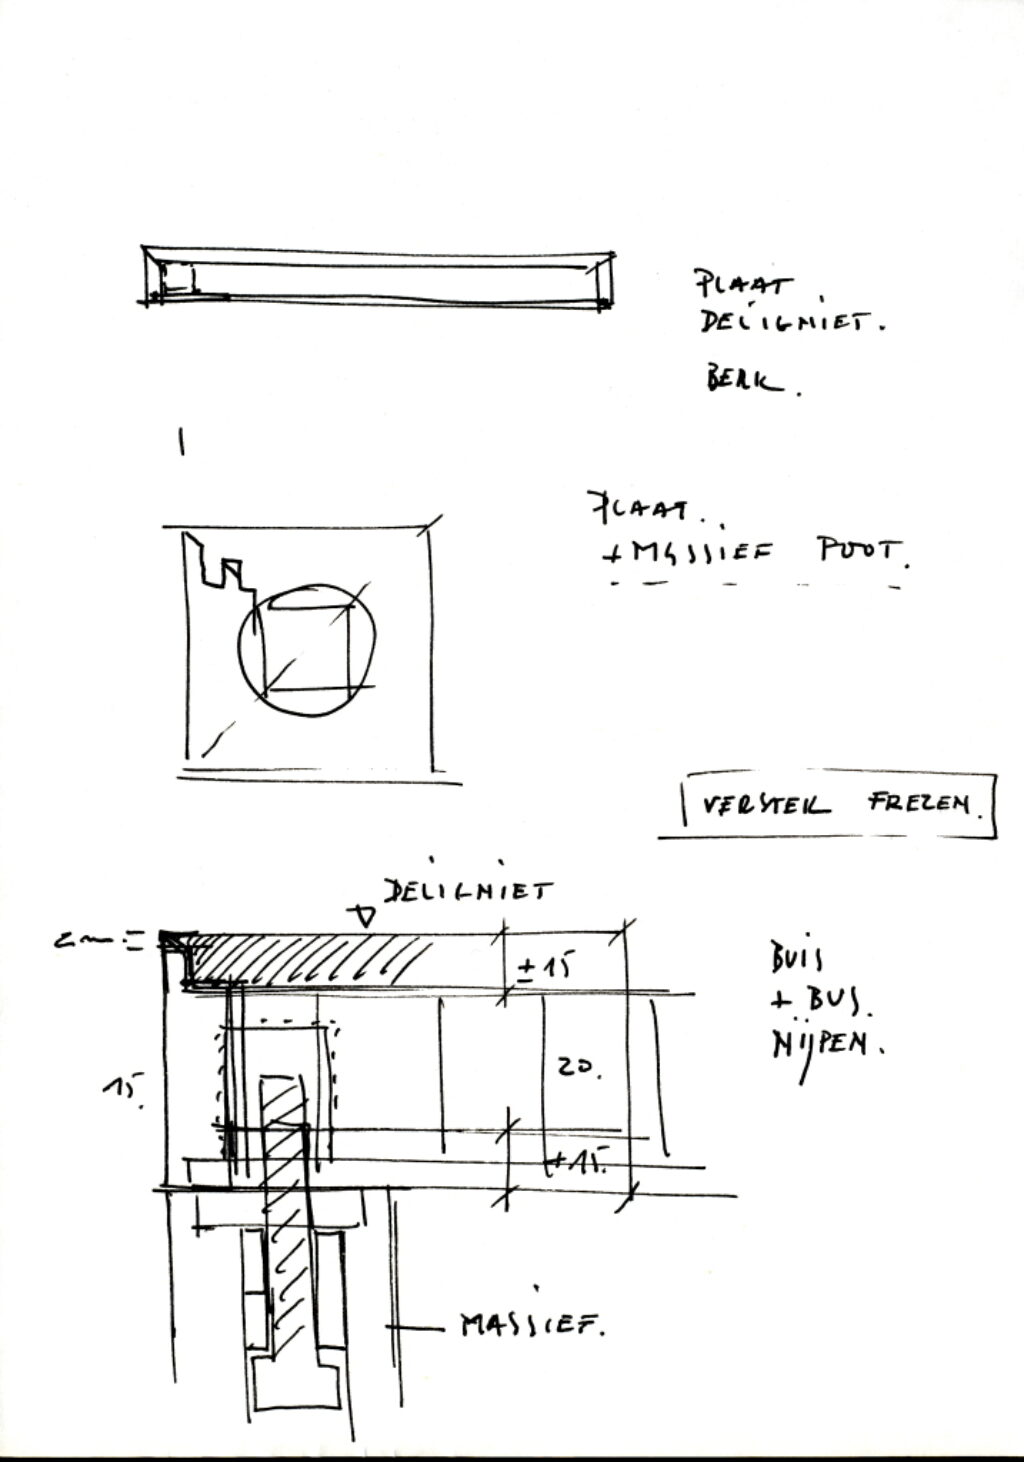 PLAAT
DELIGNIET.
BERK.
PLAAT.
+ MASSIEF POOT.
VERSTEK FREZEN.
DELIGNIET
2 m
± 15
BUIS
+ BUS.
NIJPEN.
15.
20.
+15.
MASSIEF.